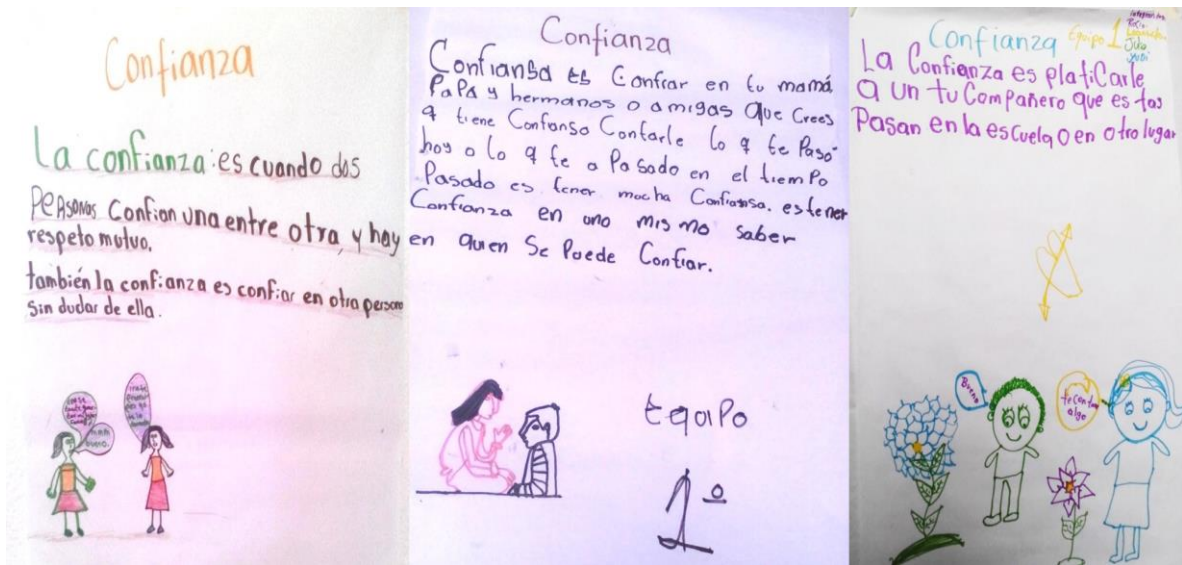 Confianza
La confianza: es cuando dos
PeRsonas Confian una entre otra, y hay
respeto mutuo.
también la confianza es confiar en otra persona
Sin dudar de ella.
bueno.
Confianza
Confiansa es Confiar en tu mamá
PaPá y hermanos o amigas que Crees
q tiene Confianso Contarle lo q te Pasó
hoy o lo q te a Pasado en el tiemPo
Pasado es tener mucha Confiansa. es tener
Confianza en uno mismo saber
en quien Se Puede Confiar.
EquiPo
1º
Confianza Equipo 1
integrantes
Julio
Yudi
La Confianza es platiCarle
a un tu Compañero que es tas
Pasan en la escuela O en otro lugar
Bueno
te Cuento
algo